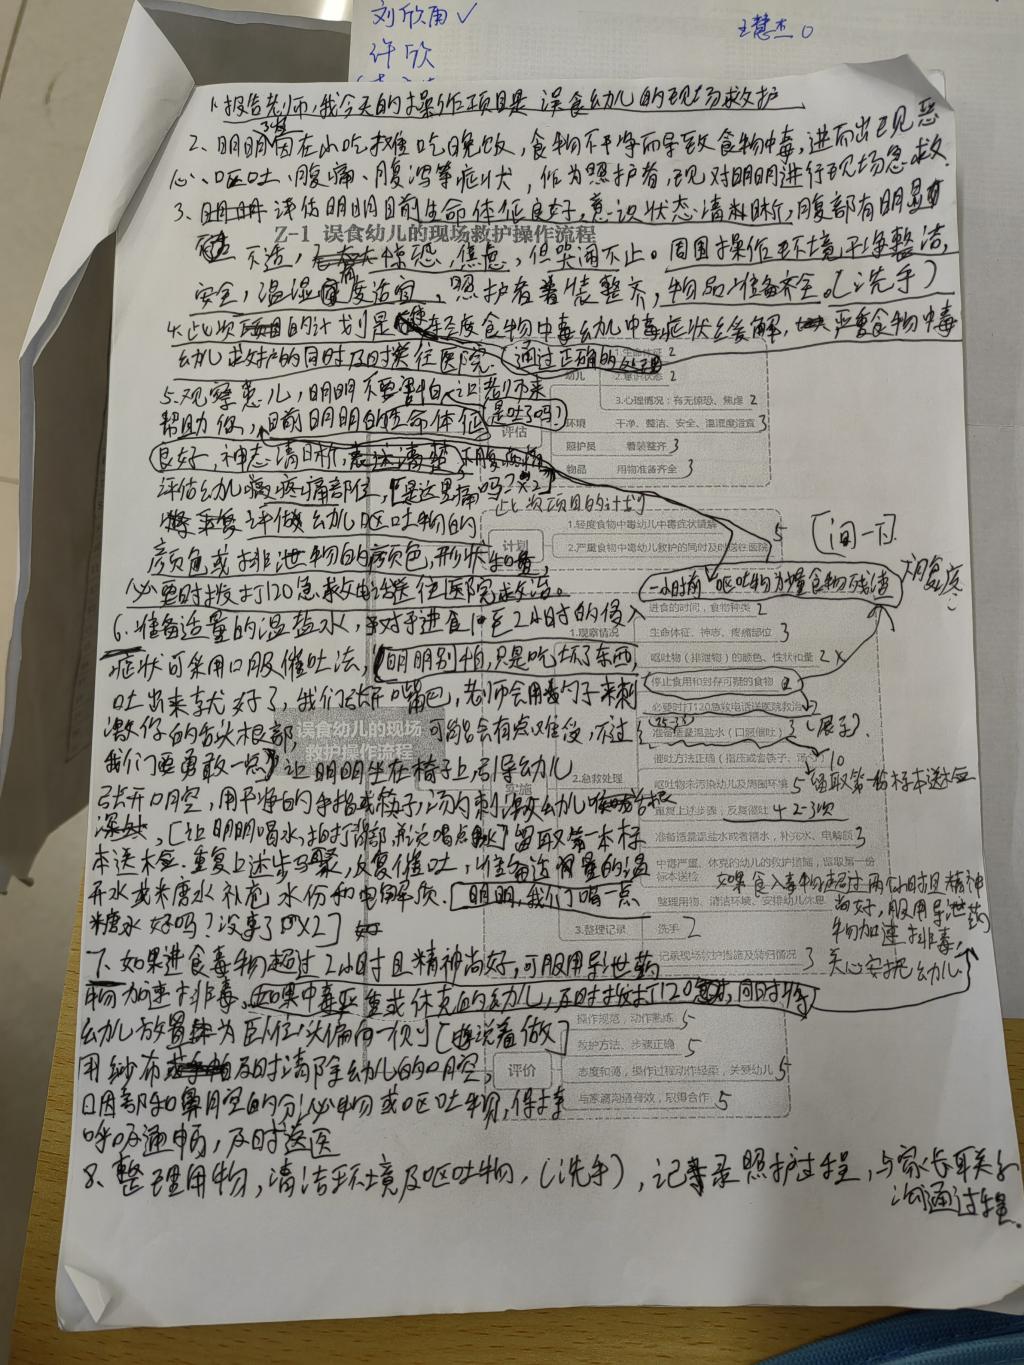 刘欣雨✓
王慧杰○
许欣
1、报告老师,我今天的操作项目是 误食幼儿的现场救护
3岁
2、明明因在小吃摊吃晚饭,食物不干净而导致食物中毒,进而出现恶
心、呕吐、腹痛、腹泻等症状,作为照护者,现对明明进行现场急救.
3、评估明明目前生命体征良好,意识状态清晰,腹部有明显
Z-1 误食幼儿的现场救护操作流程
不适,有惊恐、焦虑,但哭闹不止。周围操作环境干净整洁,
安全,温湿度适宜,照护者着装整齐,物品准备齐全。(洗手)
4、此次的计划是使轻度食物中毒幼儿中毒症状缓解,严重食物中毒
幼儿救护的同时及时送往医院.(通过正确的处理
幼儿
2.意识状态 2
3.心理情况:有无惊恐、焦虑 2
5、观察患儿,明明不要害怕,让老师来
帮助你,目前明明的生命体征 是吐了吗?
评估
环境 干净、整洁、安全、温湿度适宜 3
照护员 着装整齐 3
物品 用物准备齐全 3
良好,神志清晰,
评估幼儿疼痛部位,[是这里痛吗?X2]
此次项目的计划
评估幼儿呕吐物的
颜色或排泄物的颜色,形状和量,
计划
1.轻度食物中毒幼儿中毒症状缓解
2.严重食物中毒幼儿救护的同时及时送往医院
5
[闻一下]
必要时拨打120急救电话送往医院救治。
一小时前 呕吐物为少量食物残渣
腹疼
6、准备适量的温盐水,对于进食1~2小时的侵入
1.观察情况
进食的时间,食物种类 2
生命体征、神志、疼痛部位 3
症状可采用口服催吐法,[明明别怕,只是吃坏了东西,
呕吐物(排泄物)的颜色、性状和量 2
吐出来就好了,我们张开嘴巴,老师会用勺子来刺
停止食用和封存可疑的食物 2
必要时打120急救电话送医院救治 2
激你的舌头根部,可能会有点难受,不过
准备适量温盐水(口服催吐) 3 (展示)
25-35
误食幼儿的现场
救护操作流程
我们要勇敢一点]让明明坐在椅子上,引导幼儿
催吐方法正确(指压或者筷子、汤勺) 10
实施
2.急救处理
张开口腔,用干净的手指或筷子,汤勺刺激幼儿喉咙
呕吐物未污染幼儿及周围环境 5 留取第一份标本送检
深处,[让明明喝水,拍打背部,说喝点水]留取第一本标
重复上述步骤,反复催吐 4 2-3次
本送检.重复上述步骤,反复催吐,准备适量的温
准备适量温盐水或者糖水,补充水、电解质 3
中毒严重、休克的幼儿的救护措施,留取第一份标本送检
开水或米糖水补充水份和电解质.[明明,我们喝一点
整理用物、清洁环境、安排幼儿休息
如果食入毒物超过两个小时且精神
尚好,服用导泄药
物加速排毒,
关心安抚幼儿
糖水好吗?没事了啊X2]
3.整理记录
洗手 2
记录现场救护措施及转归情况 3
7、如果进食毒物超过2小时且精神尚好,可服用导泄药
物加速排毒.如果中毒严重或休克的幼儿,及时拨打120急救,同时将
幼儿放置为卧位头偏向一侧[边说着做]
用纱布及时清除幼儿的口腔,
评价
操作规范,动作熟练 5
救护方法、步骤正确 5
态度和蔼,操作过程动作轻柔,关爱幼儿 5
与家属沟通有效,取得合作 5
咽部和鼻腔的分泌物或呕吐物,保持
呼吸通畅,及时送医
8、整理用物,清洁环境及呕吐物,(洗手),记录照护过程,与家长联系
沟通过程.